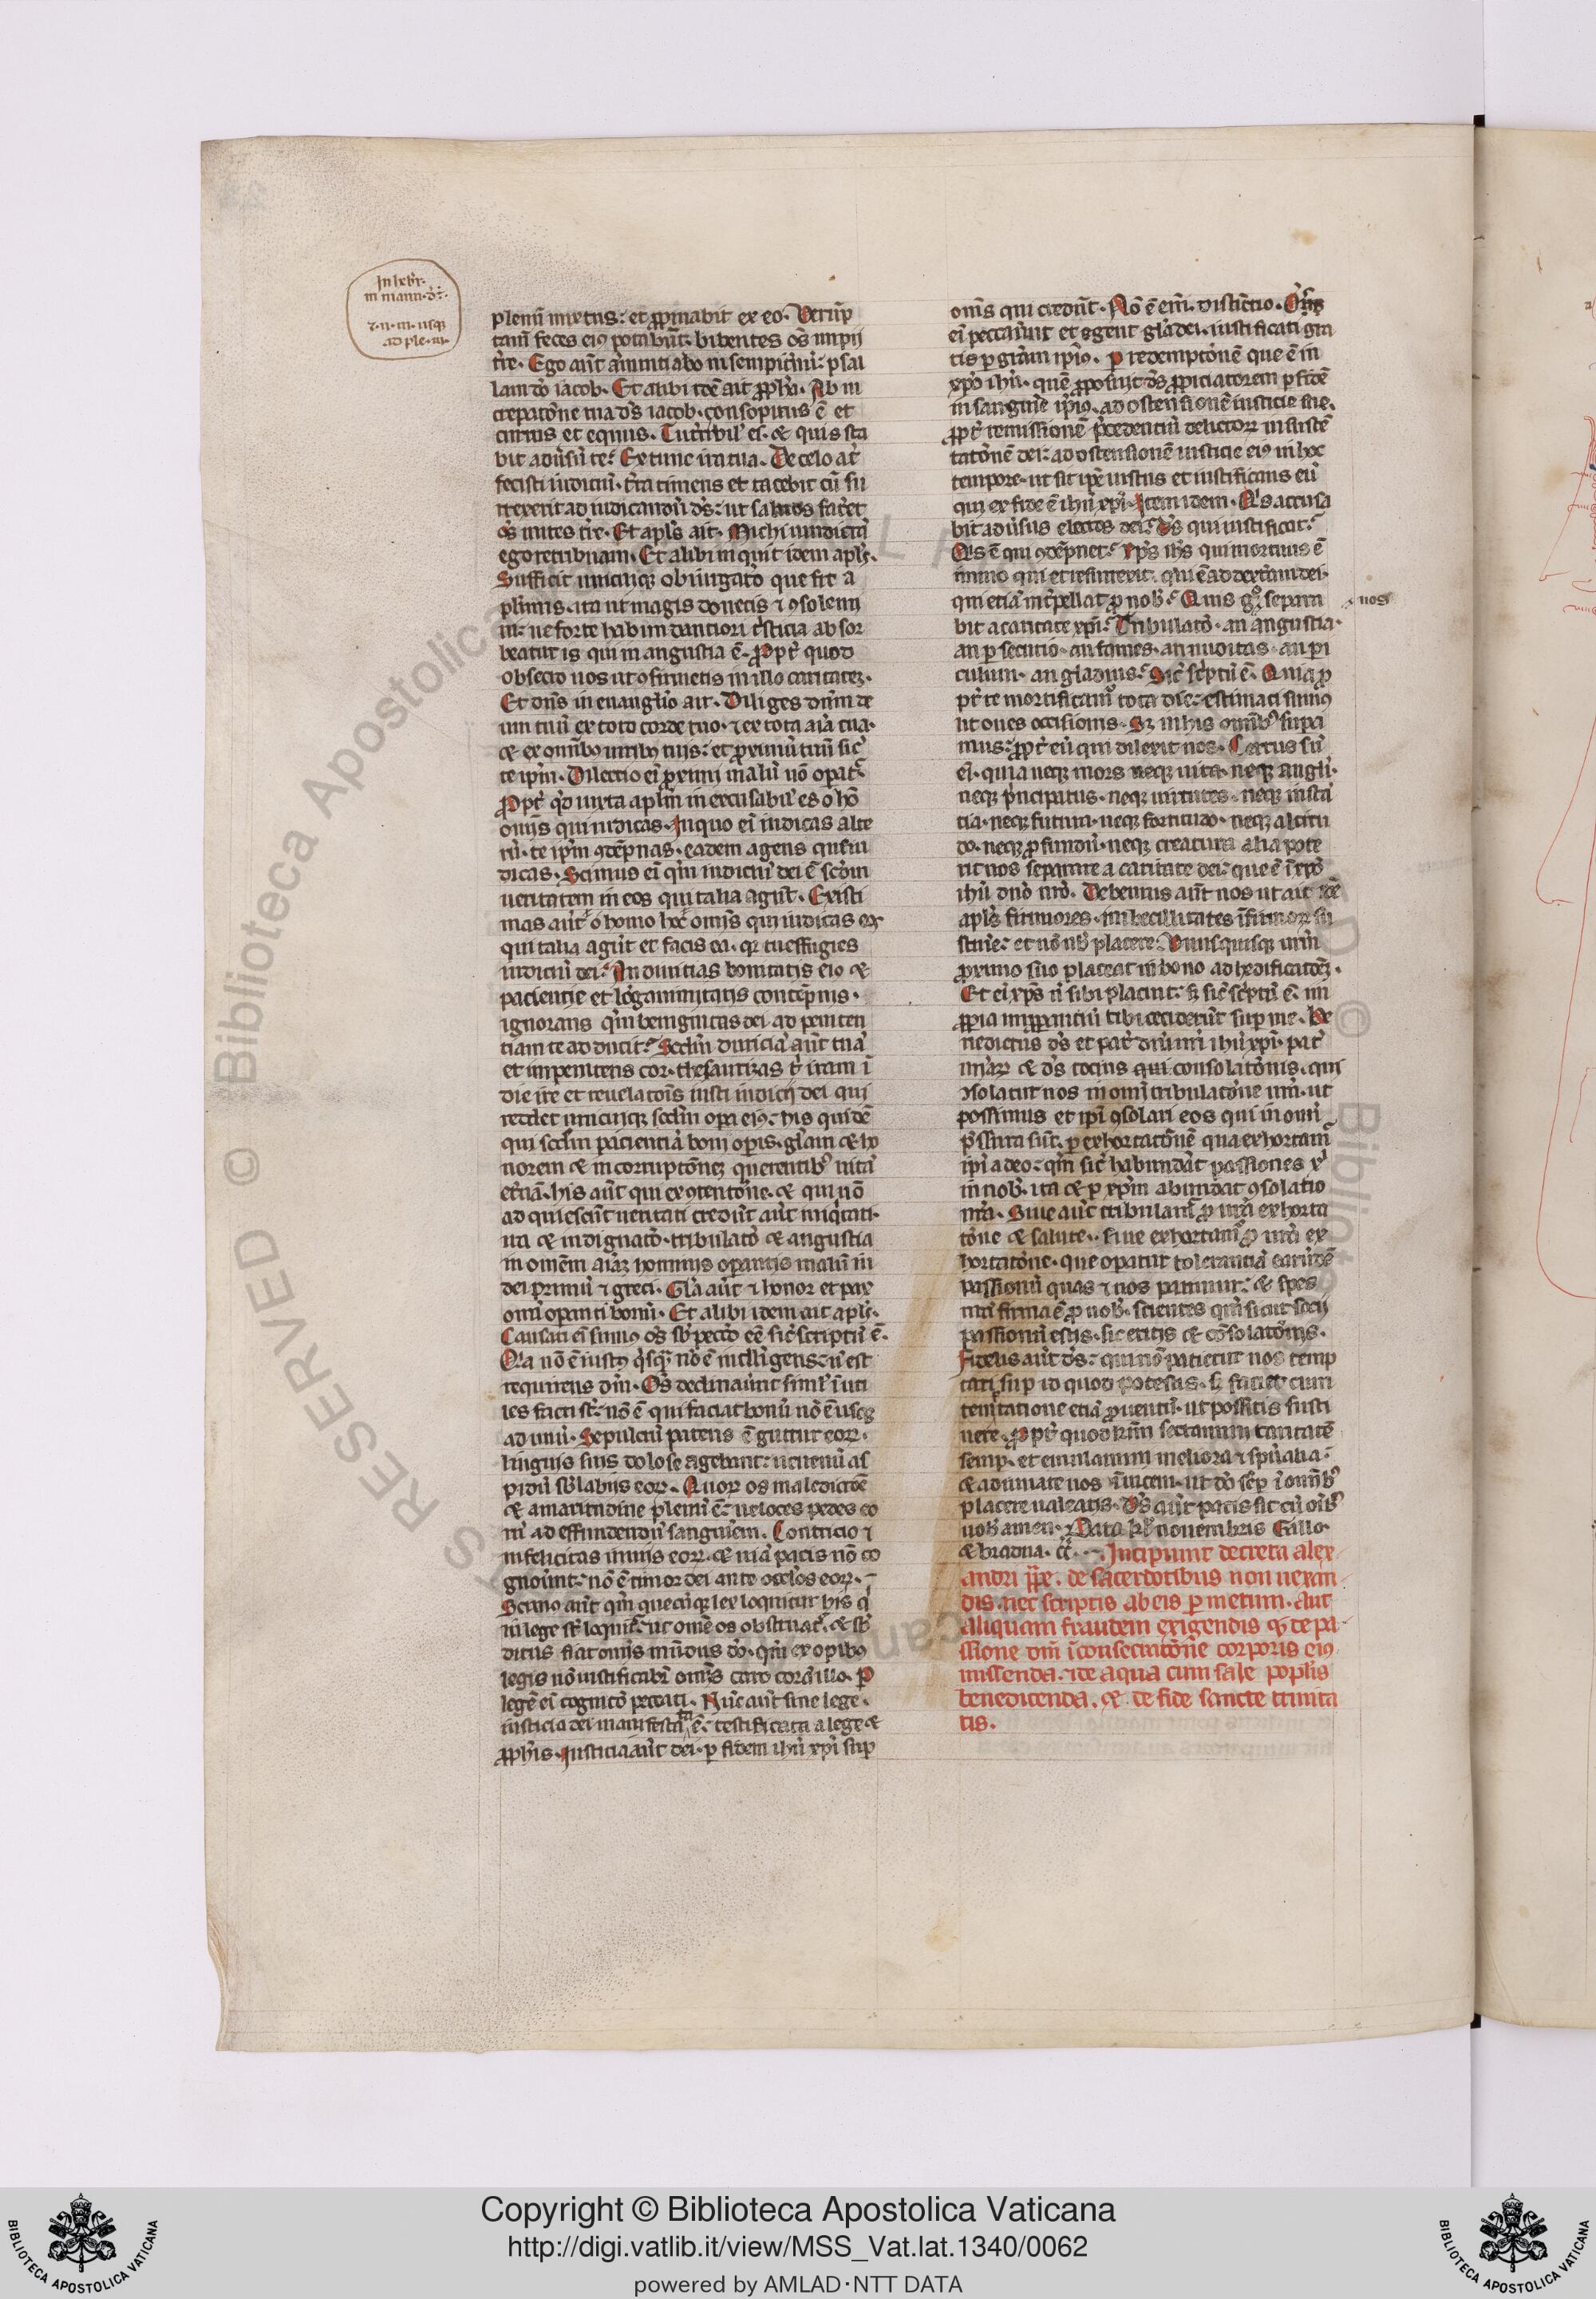 In lxbr.
in mann. dr.
7. ii. iii. usq3
ad ple. iii.
plenū mixtus: et ꝓpinabit ex eo. Verūp
tam̄ feces eiꝰ potabūt. bibentes oēs impij
t̄re. Ego aūt annuntiabo in sempit̄nū: psal
lam dō iacob. Et alibi idē ait ꝓpha. Ab in
crepatōne tua ds̄ iacob. consopitus ē et
currus et equus. Tu t̄ribil' es. & quis sta
bit adūsū te? Ex tunc ira tua. De celo at̄
fecisti iudiciū. t̄ra timens et tacebit cū su
rrexerit ad iudicandū ds̄: ut saluos faceret
oēs mites t̄re. Et apl's ait. Michi uindictā
ego retribuam. Et alibi inquit idem apl's.
Sufficit unicuiq3 obiurgatō que fit a
plurimis. ita ut magis donetis ⁊ ꝯsolemi
ni: ne forte habundantiori tristicia absor
beatur is qui in angustia ē. Propt̄ quod
obsecro uos ut ꝯfirmetis in illo caritatez.
Et dn̄s in euanglio ait. Diliges dn̄m de
um tuū ex toto corde tuo. ⁊ ex tota aīa tua.
& ex omībꝰ uiribꝰ tuis: et proximū tuū sic̄
te ipm̄. Dilectio ei' proximi malū nō operat̄.
Propt̄ qd̄ iuxta aplm̄ inexcusabil' es o hō
omīs qui iudicas. In quo ei' iudicas alte
rū. te ipm̄ ꝯdēpnas. eadem agens que iu
dicas. Scimus ei' qm̄ iudiciū dei ē scdm̄
ueritatem in eos qui talia agūt. Existi
mas aūt o homo hoc omīs qui iudicas eos
qui talia agūt et facis ea. quia tu effugies
iudiciū dei? An diuitias bonitatis eiꝰ &
pacientie et lōganimitatis contēpnis.
ignorans qm̄ benignitas dei ad peniten
tiam te adducit? Scdm̄ duriciā aūt tuā
et impenitens cor. thesaurizas t̄ iram ī
die ire et reuelatōis iusti iudicij dei qui
reddet unicuiq3 scdm̄ opa eiꝰ: his quidē
qui scdm̄ pacientiā boni operis. glāam & ho
norem & incorruptōnez querentibꝰ uitā
et̄nā. his aūt qui ex ꝯtentōne. & qui nō
adquiescūt ueritati credūt aūt iniqtati.
ira & indignatō. tribulatō & angustia
in omēm aīaz hominis operantis malū iu
dei primū ⁊ greci. Glā aūt ⁊ honor et pax
omī operanti bonū. Et alibi idem ait apl's.
Causati eī sumꝰ oēs sub peccō eē sic̄ scriptū ē.
Quia nō ē iustꝰ qisq̄. nō ē intelligens: n̄ est
requirens dm̄. Oēs declinauēnt simul inuti
les facti st̄: nō ē qui faciat bonū nō ē usq3
ad unū. Sepulcrū patens ē guttur eoꝝ.
linguis suis dolose agebant: uenenū as
pidū sub labiis eoꝝ. Quoꝝ os maledictōe
& amaritudine plenū ē: ueloces pedes eo
rū ad effundendū sanguinem. Contricio ⁊
infelicitas in uiis eoꝝ. & uiā pacis nō co
gnoūnt: nō ē timor dei ante ocl'os eoꝝ.
Scimꝰ aūt qm̄ quecūq3 lex loquitur his q̄
in lege st̄ loquit̄: ut omē os obstruat̄. & sb̄
ditus fiat omīs mūdus dō. qm̄ ex opibꝰ
legis nō iustificabit̄ omīs caro corā illo. P
legē ei' cognitō peccati. Nūc aūt sine lege.
iusticia dei manifestata ē: testificata a lege &
ꝓphis. Iusticia aūt dei. p fidem ihū xpi sup
omīs qui credūt. Nō ē enī distictio. Omīs
ei' peccauēnt et egent glā dei. iustificati gra
tis p grām ipiꝰ. p redemptōnē que ē in
xpo ihū. quē ꝓposuit ds̄ ꝓpiciatorem p fidē
in sanguine ipiꝰ. ad ostensionē iusticie sue.
ꝓpt̄ remissionē p̄cedentiū delictoꝝ in susten
tatōnē dei: ad ostensionē iusticie eiꝰ in hoc
tempore. ut sit ipē iustus et iustificans eū
qui ex fide ē ihū xpi. Item idem. Qis accusa
bit adūsus electos dei? Ds̄ qui iustificat?
Qis ē qui ꝯdēpnet? Xps ihs qui mortuus ē
immo qui et resurrexit. qui ē ad dexterā dei.
qui etiā interpellat ꝓ nob'? Quis go separa
nos
bit a caritate xpi? Tribulatō. an angustia.
an persecutio. an fames. an nuditas. an peri
culum. an gladius? Sic̄ scptū ē. Quia ꝓ
pt̄ te mortificamꝰ tota die: estimati sumꝰ
ut oues occisionis. S3 in his omībꝰ supa
mus: ꝓpt̄ eū qui dilexit nos. Certus sū
ei'. quia neq3 mors neq3 uita. neq3 angli.
neq3 p̄ncipatus. neq3 uirtutes. neq3 instā
tia. neq3 futura. neq3 fortitudo. neq3 altitu
do. neq3 ꝓfundū. neq3 creatura alia pote
rit nos separare a caritate dei: que ē ī xpo
ihū dn̄o nr̄o. Debemus aūt nos ut ait idē
apl's firmiores. imbecillitates īfirmoꝝ su
stinē: et nō nob' placere. Vnusquisq3 ur̄m
proximo suo placeat in bono ad hedificatōez.
Et ei' xps n̄ sibi placuit: s3 sic̄ scptū ē. im
ꝓpia imꝓperantiū tibi ceciderūt sup me. Be
nedictus ds̄ et pat̄ dn̄i nr̄i ihū xpi. pat̄
mīaꝝ & ds̄ tocius consolatōnis. qui
ꝯsolatur nos in omī tribulatōne nr̄a. ut
possimus et ipi ꝯsolari eos qui in omī
p̄ssura sūt. p exhortatōnē qua exhortam̄
ipi a deo: qm̄ sic̄ habundāt passiones xpi
in nob'. ita & p xpm̄ abundat ꝯsolatio
nr̄a. Siue aūt tribulam̄ ꝓ ur̄a exhorta
tōne & salute. siue exhortam̄ ꝓ ur̄a ex
hortatōne. que operatur tolerantiā earūdē
passionū quas ⁊ nos patimur: & spes
nr̄a firma ē ꝓ uob'. scientes qm̄ sicut socij
passionū estis. sic eritis & cōsolatōnis.
Fidelis aūt ds̄: qui nō patietur uos temp
tari sup id quod potestis. s3 faciet cum
temptatione etiā ꝓuentū. ut possitis susti
nere. Propt̄ quod kmī sectamini caritatē
semp. et emulamini meliora ⁊ spūalia:
& adiuuate uos īuicem. ut dō sēp ī omībꝰ
placere ualeatis. Ds̄ aūt pacis sit cū oībꝰ
uob' amen. Data kl' nouembris Gallo.
& bradua. cc̄. Incipiunt decreta alex
andri pp̄e. de sacerdotibus non uexan
dis. nec scriptis ab eis p metum. aut
aliquam fraudem exigendis q3 de pa
ssione dn̄i ī consecratōne corporis eiꝰ
miscenda. ⁊ de aqua cum sale populis
benedicenda. & de fide sancte trinita
tis.
Copyright © Biblioteca Apostolica Vaticana
http://digi.vatlib.it/view/MSS_Vat.lat.1340/0062
powered by AMLAD·NTT DATA
BIBLIOTECA APOSTOLICA VATICANA
BIBLIOTECA APOSTOLICA VATICANA